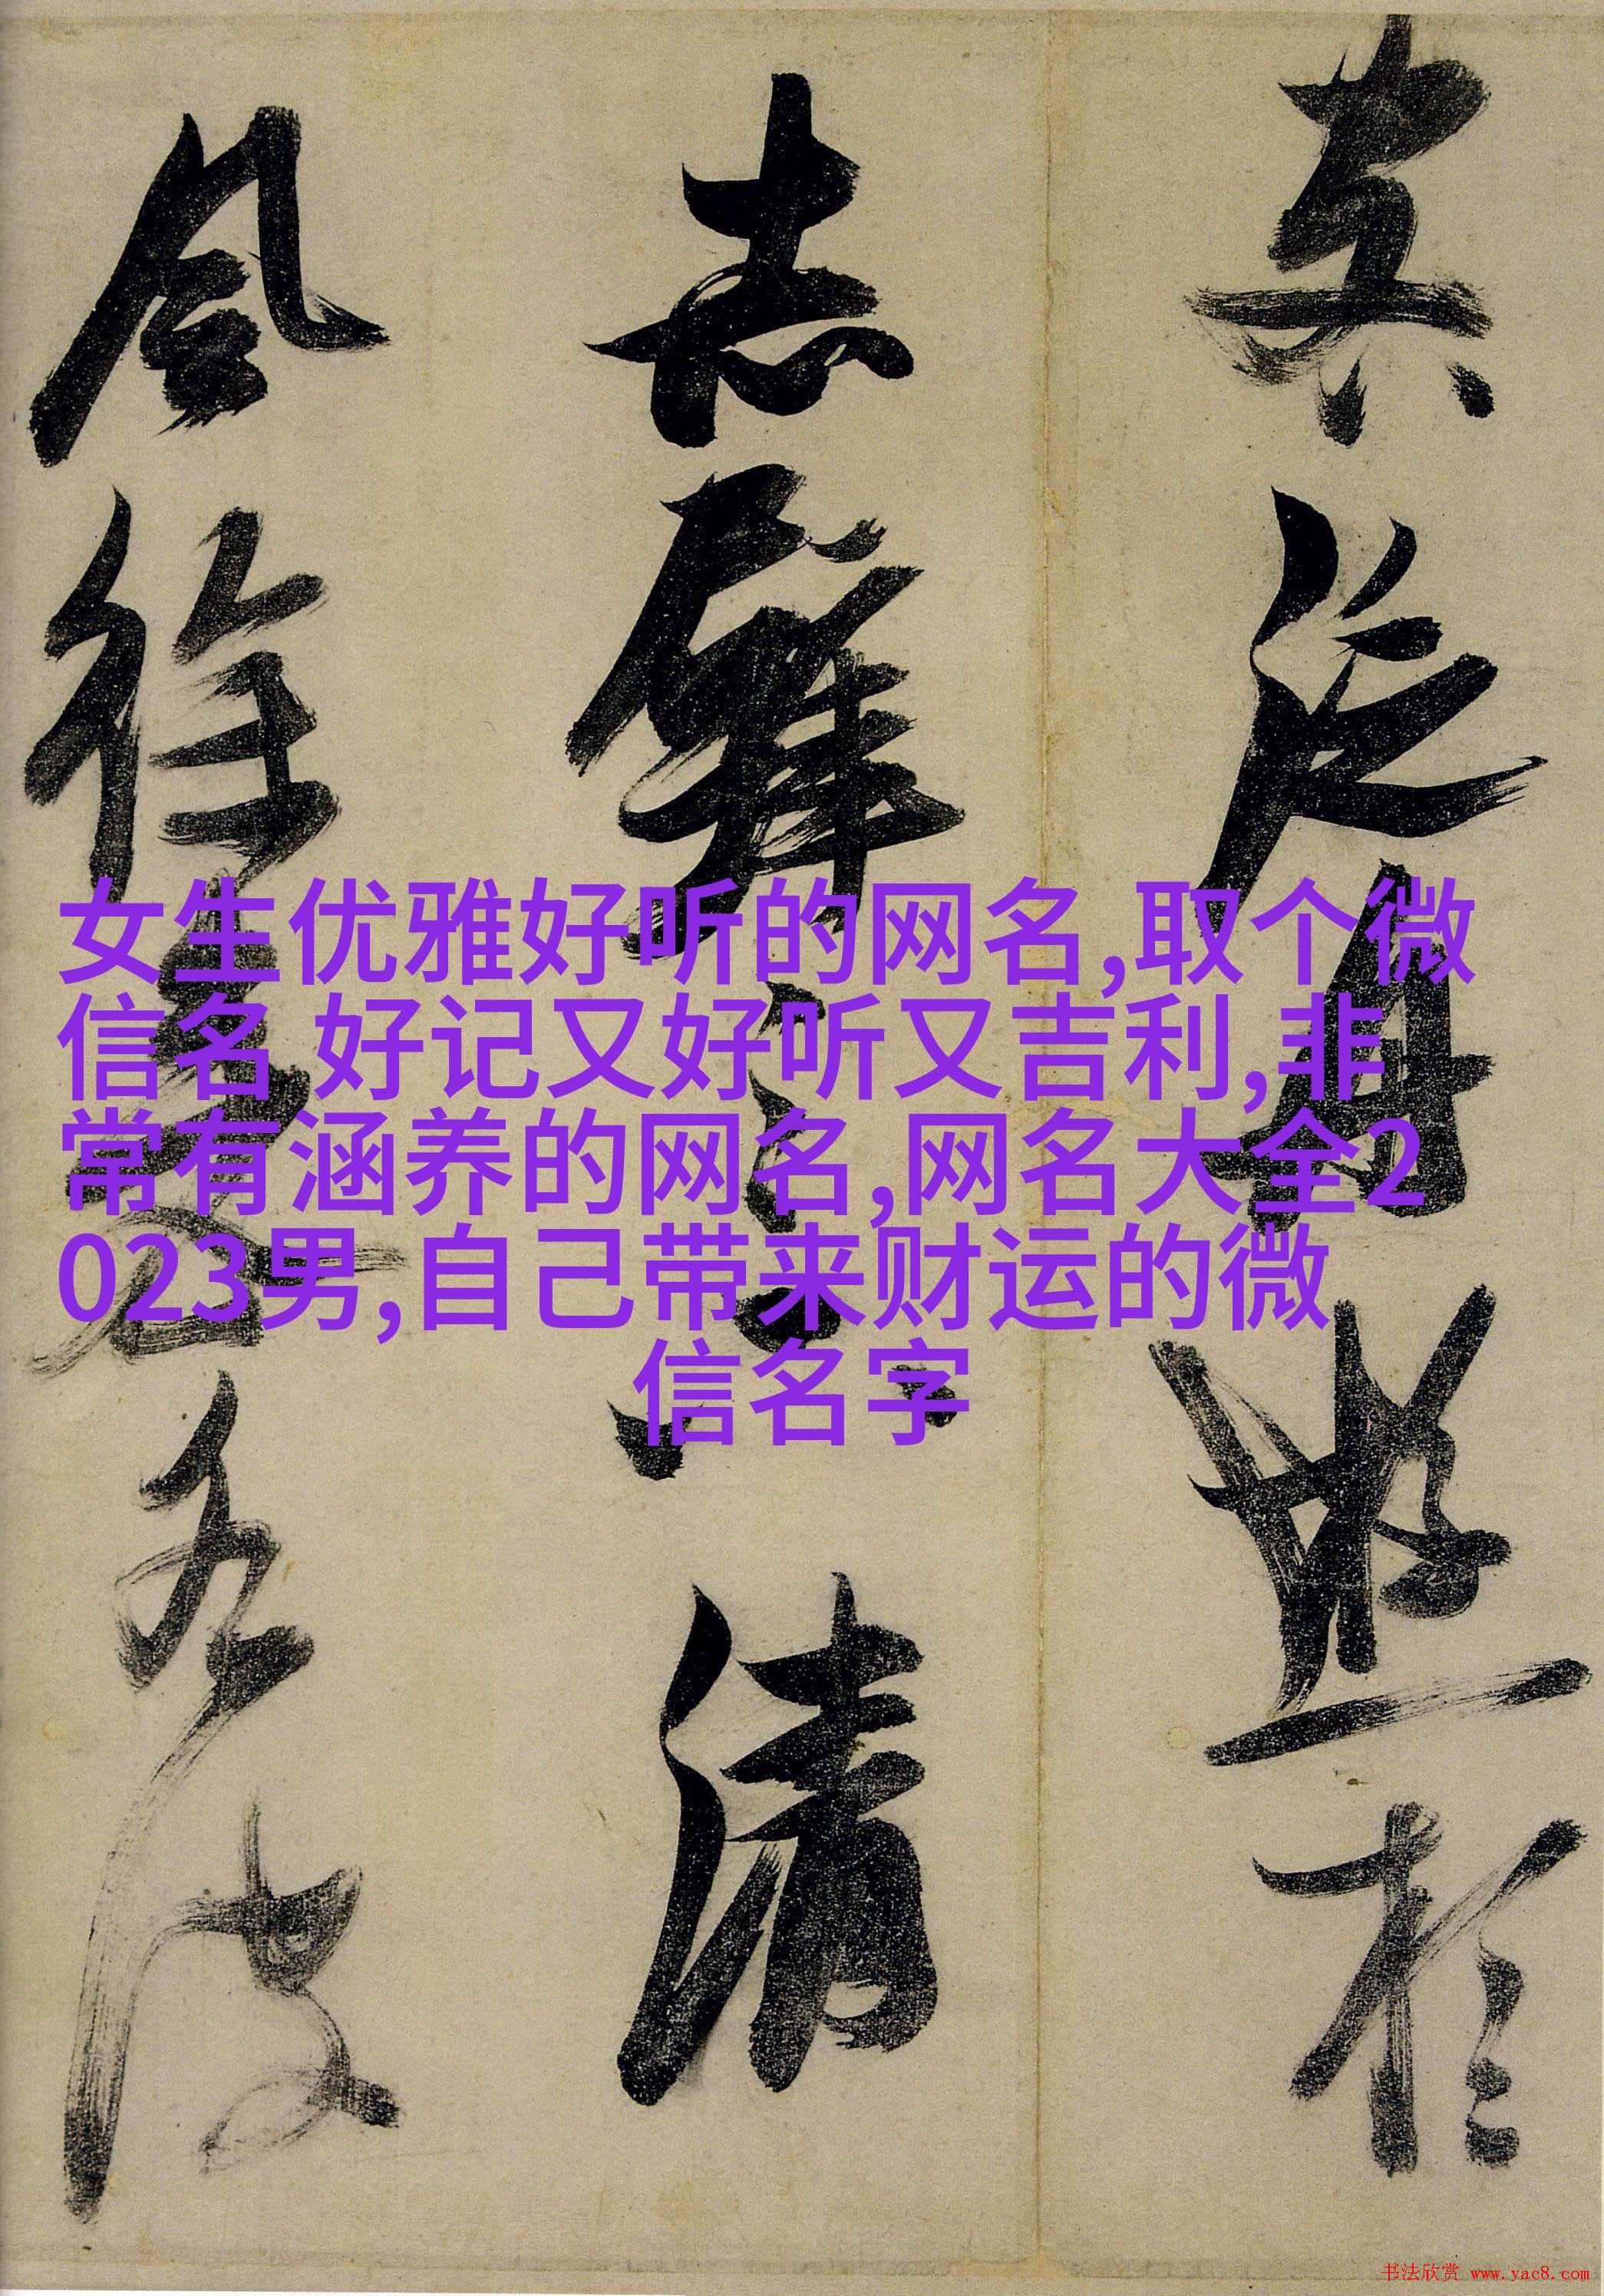 泛舟遊於
赤壁之下清
風徐來水波
女生优雅好听的网名,取个微
信名 好记又好听又吉利,非
常有涵养的网名,网名大全2
023男,自己带来财运的微
信名字
书法欣赏 www.yac8.com